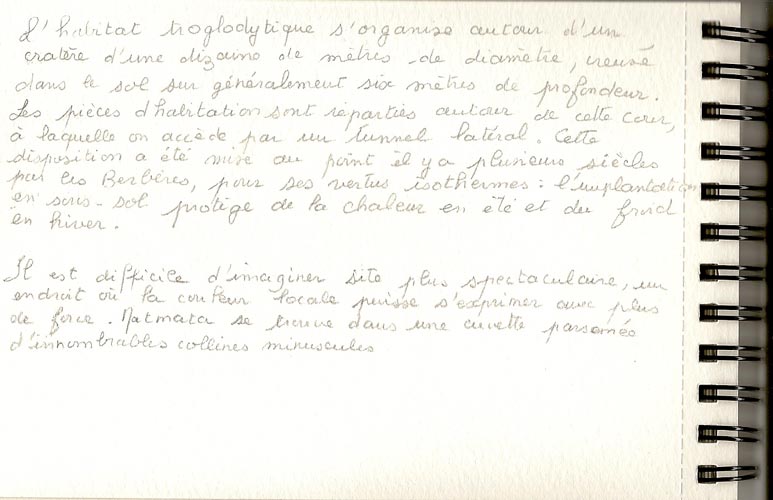 L'habitat troglodytique s'organise autour d'un
cratère d'une dizaine de mètres de diamètre, creusé
dans le sol sur généralement six mètres de profondeur.
Les pièces d'habitation sont réparties autour de cette cour,
à laquelle on accède par un tunnel latéral. Cette
disposition a été mise au point il y a plusieurs siècles
par les Berbères, pour ses vertus isothermes : l'implantation
en sous-sol protège de la chaleur en été et du froid
en hiver.
Il est difficile d'imaginer site plus spectaculaire, un
endroit où la couleur locale puisse s'exprimer avec plus
de force. Matmata se trouve dans une cuvette parsemée
d'innombrables collines minuscules